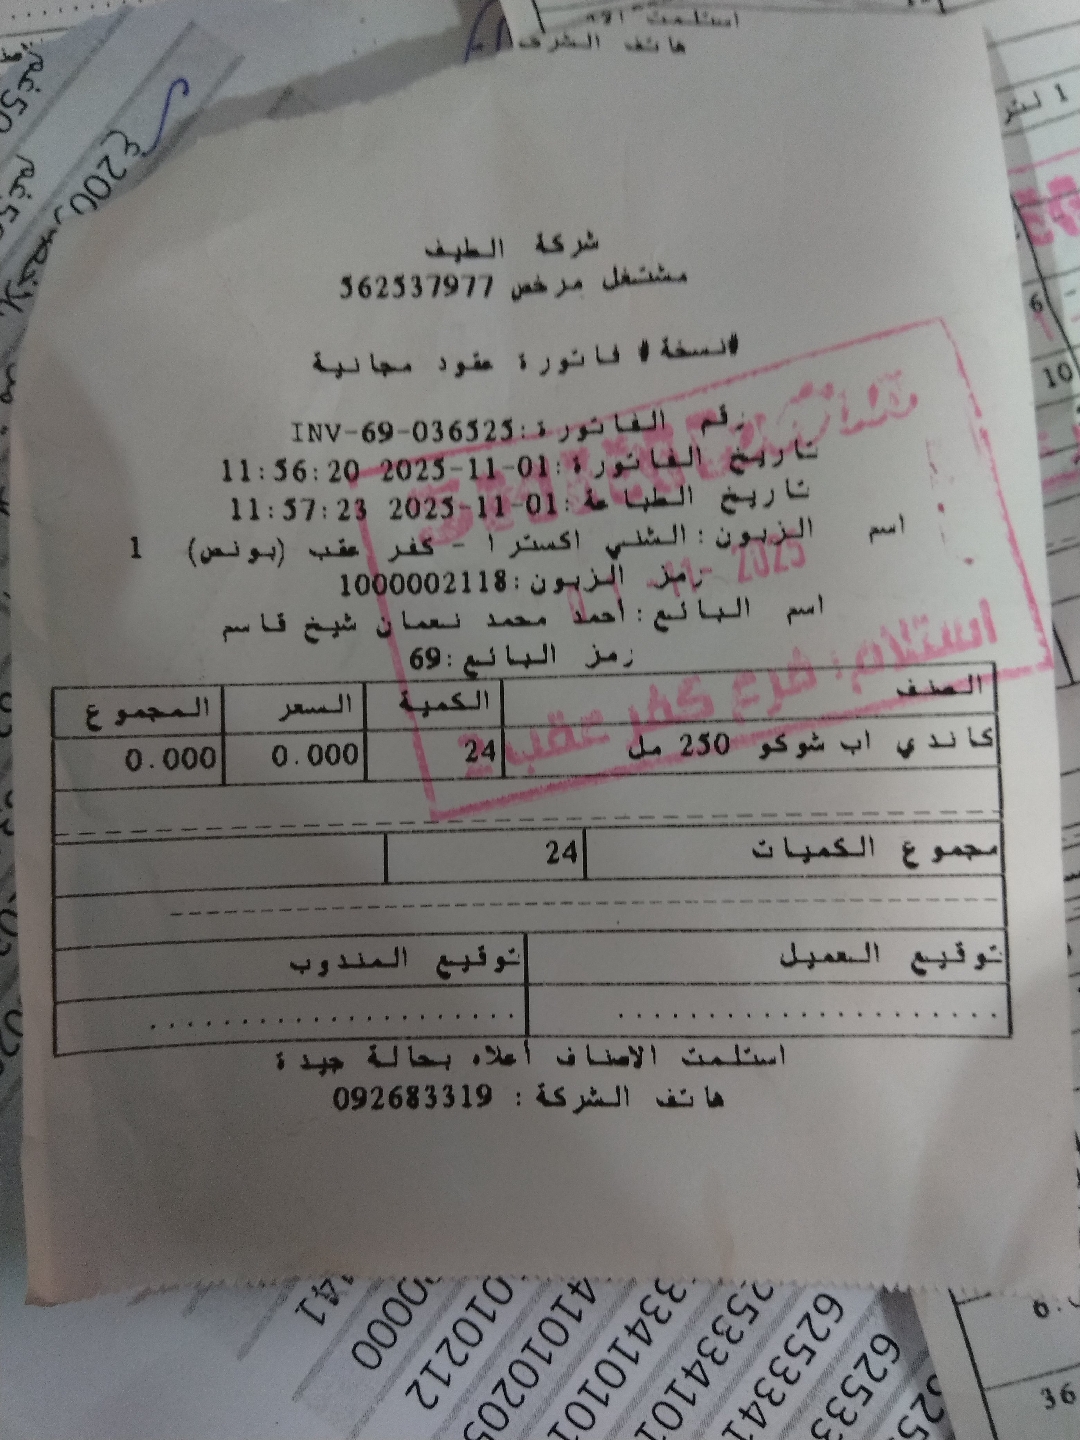 استلمت الا
هاتف الشرك
شركة الطيف
مشتغل مرخص 562537977
#نسخة# فاتورة عقود مجانية
رقم الفاتورة:INV-69-036525
تاريخ الفاتورة:2025-11-01 11:56:20
تاريخ الطباعة:2025-11-01 11:57:23
اسم الزبون:الشني اكسترا - كفر عقب (بونص) 1
رمز الزبون:1000002118
اسم البائع:احمد محمد نعمان شيخ قاسم
رمز البائع:69
الصنف الكمية السعر المجموع
كاندي اب شوكو 250 مل 24 0.000 0.000
مجموع الكميات 24
توقيع العميل توقيع المندوب
استلمت الاصناف أعلاه بحالة جيدة
هاتف الشركة : 092683319
11- 2025
استلام: فرع كفر عقب 2
200
1 لتر
6
10
36
41
0000
010212
4101020
33410101
25334101
62533341
62533